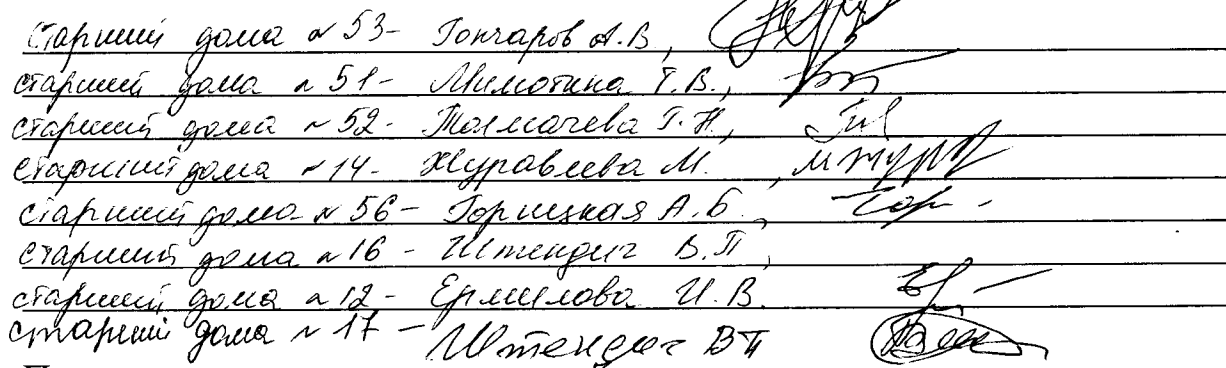 старший дома № 53- Гончаров А.В,
старший дома № 51- Милютина Т.В.,
старший дома № 52- Толмачева Г.Н,
старший дома № 14- Журавлева М. ,
старший дома № 56- Горицкая А.Б.,
старший дома № 16- Штендич В.П,
старший дома № 12- Ермилова И.В.
старший дома № 17- Штендич ВП